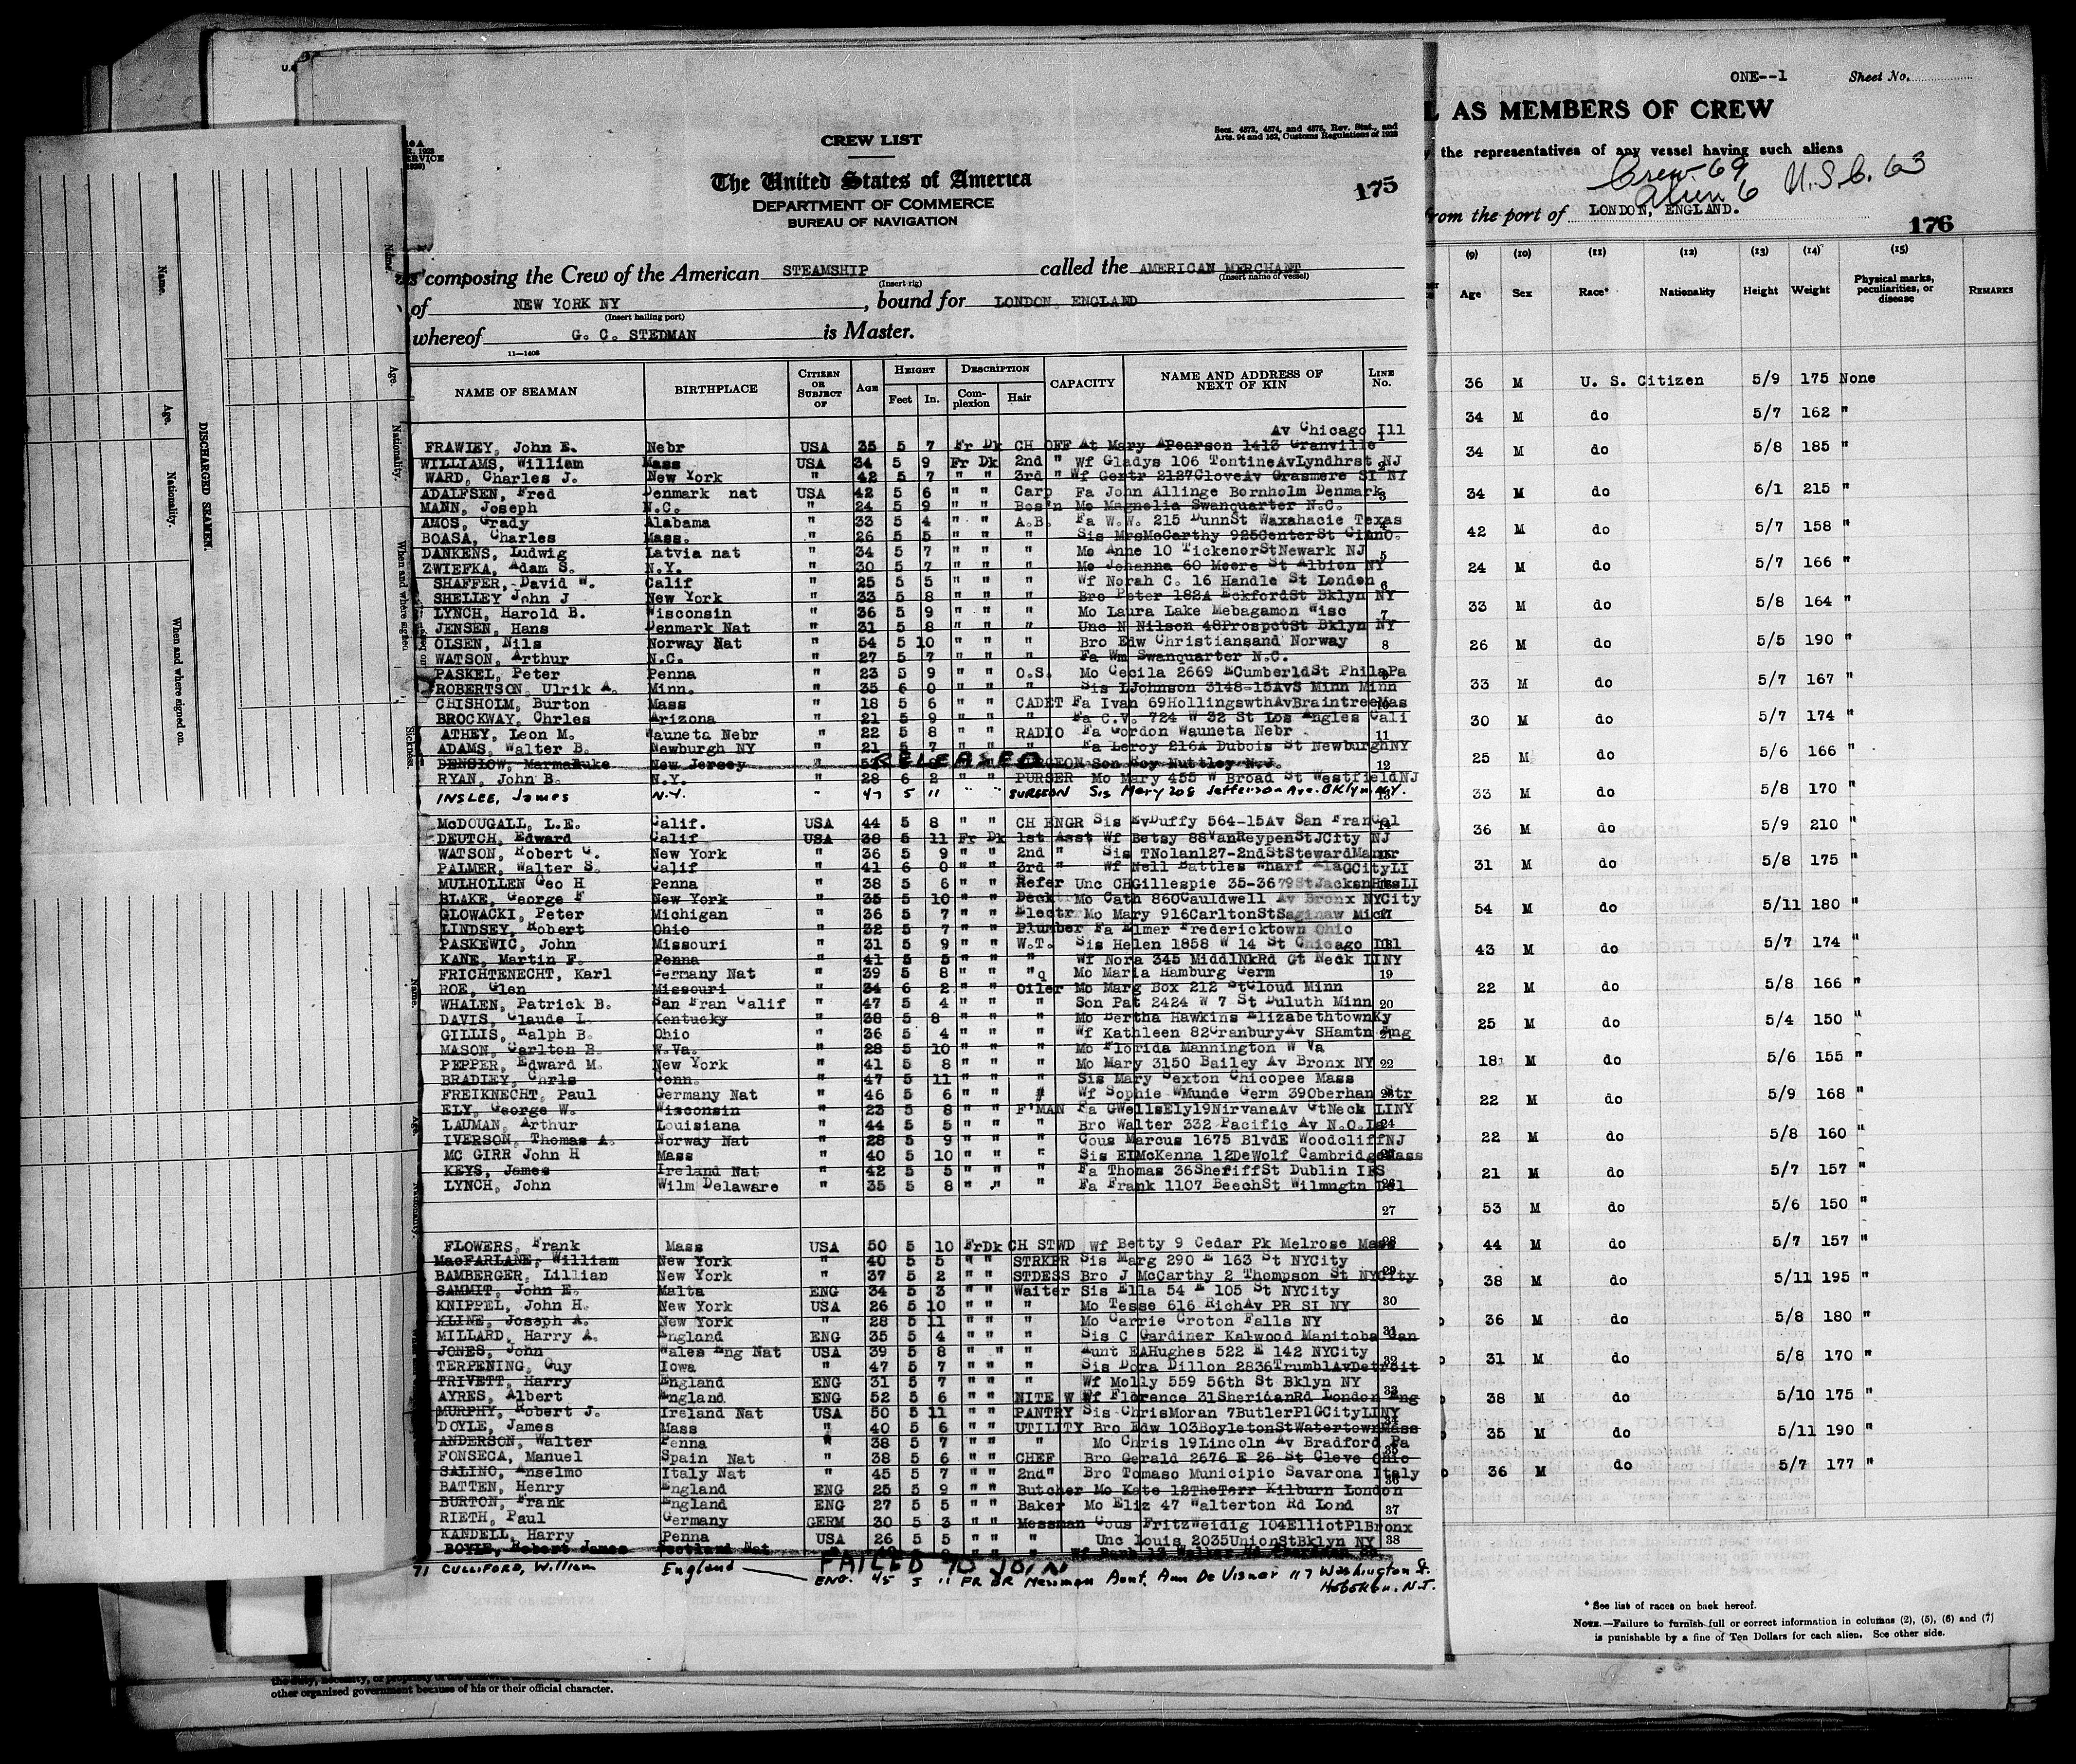 U.S
CREW LIST
Secs. 4573, 4574, and 4575, Rev. Stat., and
Arts. 94 and 162, Customs Regulations of 1923
The United States of America
175
DEPARTMENT OF COMMERCE
BUREAU OF NAVIGATION
composing the Crew of the American STEAMSHIP called the AMERICAN MERCHANT
(Insert rig) (Insert name of vessel)
of NEW YORK NY, bound for LONDON, ENGLAND
(Insert hailing port)
whereof G. C. STEDMAN is Master.
11—1408
NAME OF SEAMAN BIRTHPLACE CITIZEN OR SUBJECT OF AGE HEIGHT Feet In. DESCRIPTION Complexion Hair CAPACITY NAME AND ADDRESS OF NEXT OF KIN LINE No.
Av Chicago Ill
FRAWLEY, John E. Nebr USA 35 5 7 Fr Dk CH OFF At Mary APearson 1413 Granville 1
WILLIAMS, William Mass USA 34 5 9 Fr Dk 2nd " Wf Gladys 106 TontineAvLyndhrst NJ 2
WARD, Charles J. New York " 42 5 7 " " 3rd " Wf Gertr 2127CloveAv Grasmere SI NY
ADALFSEN, Fred Denmark nat USA 42 5 6 " " Carp Fa John Allinge Bornholm Denmark 3
MANN, Joseph N.C. " 24 5 9 " " Bos'n Mo Magnolia Swanquarter N.C.
AMOS, Grady Alabama " 33 5 4 " " A.B. Fa W.W. 215 DunnSt Waxahacie Texas 4
BOASA, Charles Mass. " 26 5 5 " " " Sis MrsMcCarthy 925CenterSt CinnO.
DANKENS, Ludwig Latvia nat " 34 5 7 " " " Mo Anne 10 TickenorStNewark NJ 5
ZWIEFKA, Adam S. N.Y. " 30 5 7 " " " Mo Johanna 60 Moore St Albion NY
SHAFFER, David W. Calif " 25 5 5 " " " Wf Norah C. 16 Handle St London 6
SHELLEY John J New York " 33 5 8 " " " Bro Peter 182A EckfordSt Bklyn NY
LYNCH, Harold B. Wisconsin " 36 5 9 " " " Mo Laura Lake Mebagamon Wisc 7
JENSEN, Hans Denmark Nat " 31 5 8 " " " Unc N Nilson 48ProspctSt Bklyn NY
OLSEN, Nils Norway Nat " 54 5 10 " " " Bro Edw Christiansand Norway 8
WATSON, Arthur N.C. " 27 5 7 " " " Fa Wm Swanquarter N.C.
PASKEL, Peter Penna " 23 5 9 " " O.S. Mo Cecila 2669 ECumberldSt PhilaPa
ROBERTSON, Ulrik A. Minn. " 35 6 0 " " " Sis LJohnson 3148-15AvS Minn Minn
CHISHOLM, Burton Mass " 18 5 6 " " CADET Fa Ivan 69HollingswthAvBraintreeMas
BROCKWAY, Chrles Arizona " 21 5 9 " " " Fa C.V. 724 W 32 St Los Angles Cali
ATHEY, Leon M. Wauneta Nebr " 22 5 8 " " RADIO Fa Gordon Wauneta Nebr 11
ADAMS, Walter B. Newburgh NY " 21 5 7 " " " Fa Leroy 216A Dubois St NewburghNY
DENSLOW, Marmaduke New Jersey " RELEASED SURGEON Son Roy Nuttley N.J. 12
RYAN, John B. N.Y. " 28 6 2 " " PURSER Mo Mary 455 W Broad St WestfieldNJ
INSLEE, James N.Y. " 47 5 11 " " SURGEON Sis Mary 208 Jefferson Ave. BKlyn N.Y. 13
McDOUGALL, L.E. Calif. USA 44 5 8 " " CH ENGR Sis EvDuffy 564-15Av San FranCal 14
DEUTCH, Edward Calif USA 38 5 11 Fr Dk 1st Asst Wf Betsy 88VanReypenStJCity NJ
WATSON, Robert G. New York " 36 5 9 " " 2nd " Sis TNolan127-2ndStStewardManor
PALMER, Walter S. Calif " 41 6 0 " " 3rd " Wf Nell Battles Wharf Ala
MULHOLLEN Geo H Penna " 38 5 6 " " Refer Unc CHGillespie 35-3679StJacksnHtsLI
BLAKE, George F New York " 35 5 10 " " Deck Mo Cath 860Cauldwell Av Bronx NYCity
GLOWACKI, Peter Michigan " 36 5 7 " " Electr Mo Mary 916CarltonStSaginaw Mich 17
LINDSEY, Robert Ohio " 32 5 7 " " Plumber Fa Elmer Fredericktown Ohio
PASKEWIC, John Missouri " 31 5 9 " " W.T. Sis Helen 1858 W 14 St Chicago Ill
KANE, Martin F. Penna " 41 5 5 " " " Wf Nora 345 MiddlNkRd Gt Neck LINY
FRICHTENECHT, Karl Germany Nat " 39 5 8 " " " Mo Maria Hamburg Germ 19
ROE, Glen Missouri " 34 6 2 " " Oiler Mo Marg Box 212 StCloud Minn
WHALEN, Patrick B. San Fran Calif " 47 5 4 " " " Son Pat 2424 W 7 St Duluth Minn 20
DAVIS, Claude L. Kentucky " 38 5 8 " " " Mo Bertha Hawkins ElizabethtownKy
GILLIS, Ralph B. Ohio " 36 5 4 " " " Wf Kathleen 82CranburyAv SHamtn Eng 21
MASON, Carlton E. W.Va. " 28 5 10 " " " Mo Florida Mannington W Va
PEPPER, Edward M. New York " 41 5 8 " " " Mo Mary 3150 Bailey Av Bronx NY 22
BRADLEY, Chrls Conn. " 47 5 11 " " " Sis Mary Sexton Chicopee Mass
FREIKNECHT, Paul Germany Nat " 46 5 6 " " " Wf Sophie WMunde Germ 39Oberhan Str
ELY, George W. Wisconsin " 23 5 8 " " F'MAN Fa GWellsEly19NirvanaAv GtNeck LINY
LAUMAN, Arthur Louisiana " 44 5 5 " " " Bro Walter 332 Pacific Av N.O.La 24
IVERSON, Thomas A. Norway Nat " 28 5 9 " " " Cous Marcus 1675 BlvdE WoodcliffNJ
MC GIRR John H Mass " 40 5 10 " " " Sis EIMcKenna 12DeWolf CambridgeMass
KEYS, James Ireland Nat " 42 5 5 " " " Fa Thomas 36SheriffSt Dublin IFS
LYNCH, John Wilm Delaware " 35 5 8 " " " Fa Frank 1107 BeechSt Wilmngtn Del 26
27
FLOWERS, Frank Mass USA 50 5 10 FrDk CH STWD Wf Betty 9 Cedar Pk Melrose Mass 28
MacFARLANE, William New York " 40 5 5 " " STRKPR Sis Marg 290 E 163 St NYCity
BAMBERGER, Lillian New York " 37 5 2 " " STDESS Bro J McCarthy 2 Thompson St NYCity 29
SAMMIT, John E. Malta ENG 34 5 3 " " Waiter Sis Ella 54 E 105 St NYCity
KNIPPEL, John H. New York USA 26 5 10 " " " Mo Tesse 616 RichAv PR SI NY 30
KLINE, Joseph A. New York " 28 5 11 " " " Mo Carrie Croton Falls NY
MILLARD, Harry A. England ENG 35 5 4 " " " Sis C Gardiner Kalwood Manitoba Can 31
JONES, John Wales Eng Nat USA 39 5 8 " " " Aunt EAHughes 522 E 142 NYCity
TERPENING, Guy Iowa " 47 5 7 " " " Sis Dora Dillon 2836TrumblAvDetroit 32
TRIVETT, Harry England ENG 31 5 7 " " " Wf Molly 559 56th St Bklyn NY
AYRES, Albert England ENG 52 5 6 " " NITE W Wf Florence 31SheridanRd London Eng 33
MURPHY, Robert J. Ireland Nat USA 50 5 11 " " PANTRY Sis ChrisMoran 7ButlerPlGCityLINY
DOYLE, James Mass " 40 5 6 " " UTILITY Bro Edw 103BoyletonStWatertownMass 34
ANDERSON, Walter Penna " 38 5 7 " " " Mo Chris 19Lincoln Av Bradford Pa
FONSECA, Manuel Spain Nat " 38 5 6 " " CHEF Bro Gerald 2676 E 26 St Cleve Ohio 35
SALINO, Anselmo Italy Nat " 45 5 7 " " 2nd" Bro Tomaso Municipio Savarona Italy 36
BATTEN, Henry England ENG 25 5 9 " " Butcher Mo Kate 12TheTerr Kilburn London
BURTON, Frank England ENG 27 5 5 " " Baker Mo Eliz 47 Walterton Rd Lond 37
RIETH, Paul Germany GERM 30 5 3 " " Messman Cous FritzWeidig 104ElliotPlBronx
KANDELL, Harry Penna USA 26 5 5 " " " Unc Louis 2035UnionStBklyn NY 38
BOYLE, Robert James Scotland Nat FAILED TO JOIN
71 CULLIFORD, William England ENG. 45 5 11 FR BR Messman Aunt. Ann De Visner 117 Washington St.
Hoboken, N.J.
ONE--1 Sheet No.
AS MEMBERS OF CREW
the representatives of any vessel having such aliens
Crew-69
Alien 6 U.S.C. 63
from the port of LONDON, ENGLAND.
176
(9) (10) (11) (12) (13) (14) (15)
Age Sex Race* Nationality Height Weight Physical marks, peculiarities, or disease REMARKS
36 M U. S. Citizen 5/9 175 None
34 M do 5/7 162 "
34 M do 5/8 185 "
34 M do 6/1 215 "
42 M do 5/7 158 "
24 M do 5/7 166 "
33 M do 5/8 164 "
26 M do 5/5 190 "
33 M do 5/7 167 "
30 M do 5/7 174 "
25 M do 5/6 166 "
33 M do 5/8 170 "
36 M do 5/9 210 "
31 M do 5/8 175 "
54 M do 5/11 180 "
43 M do 5/7 174 "
22 M do 5/8 166 "
25 M do 5/4 150 "
18 M do 5/6 155 "
22 M do 5/9 168 "
22 M do 5/8 160 "
21 M do 5/7 157 "
53 M do 5/6 150 "
44 M do 5/7 157 "
38 M do 5/11 195 "
36 M do 5/8 180 "
31 M do 5/8 170 "
38 M do 5/10 175 "
35 M do 5/11 190 "
36 M do 5/7 177 "
* See list of races on back hereof.
NOTE.—Failure to furnish full or correct information in columns (2), (5), (6) and (7)
is punishable by a fine of Ten Dollars for each alien. See other side.
DISCHARGED SEAMEN.
Name. Age. Nationality. When and where signed on.
Name. Age. Nationality. When and where signed on. Sickness.
Name. Age. Nationality.
other organized government because of his or their official character.